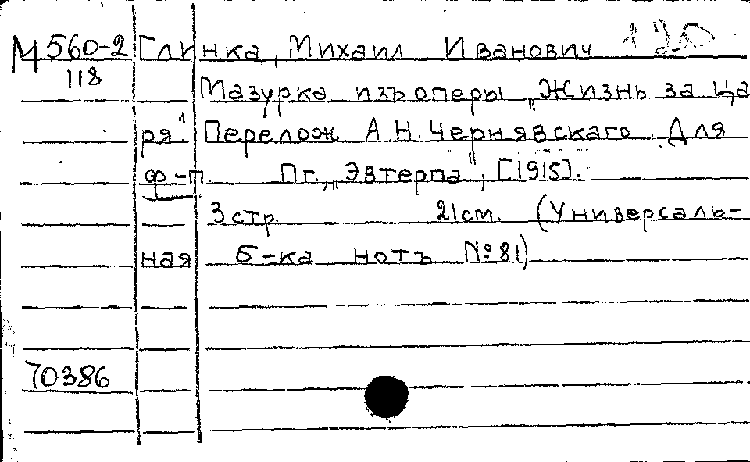 М 560-2 Глинка, Михаил Иванович
118
Мазурка изъ оперы „Жизнь за Ца
ря" Перелож А.Н. Чернявскаго. Для
ф-п. Пг., „Эвтерпа", [1915].
3 стр. 21 см. (Универсаль-
ная б-ка нотъ № 81)
70386